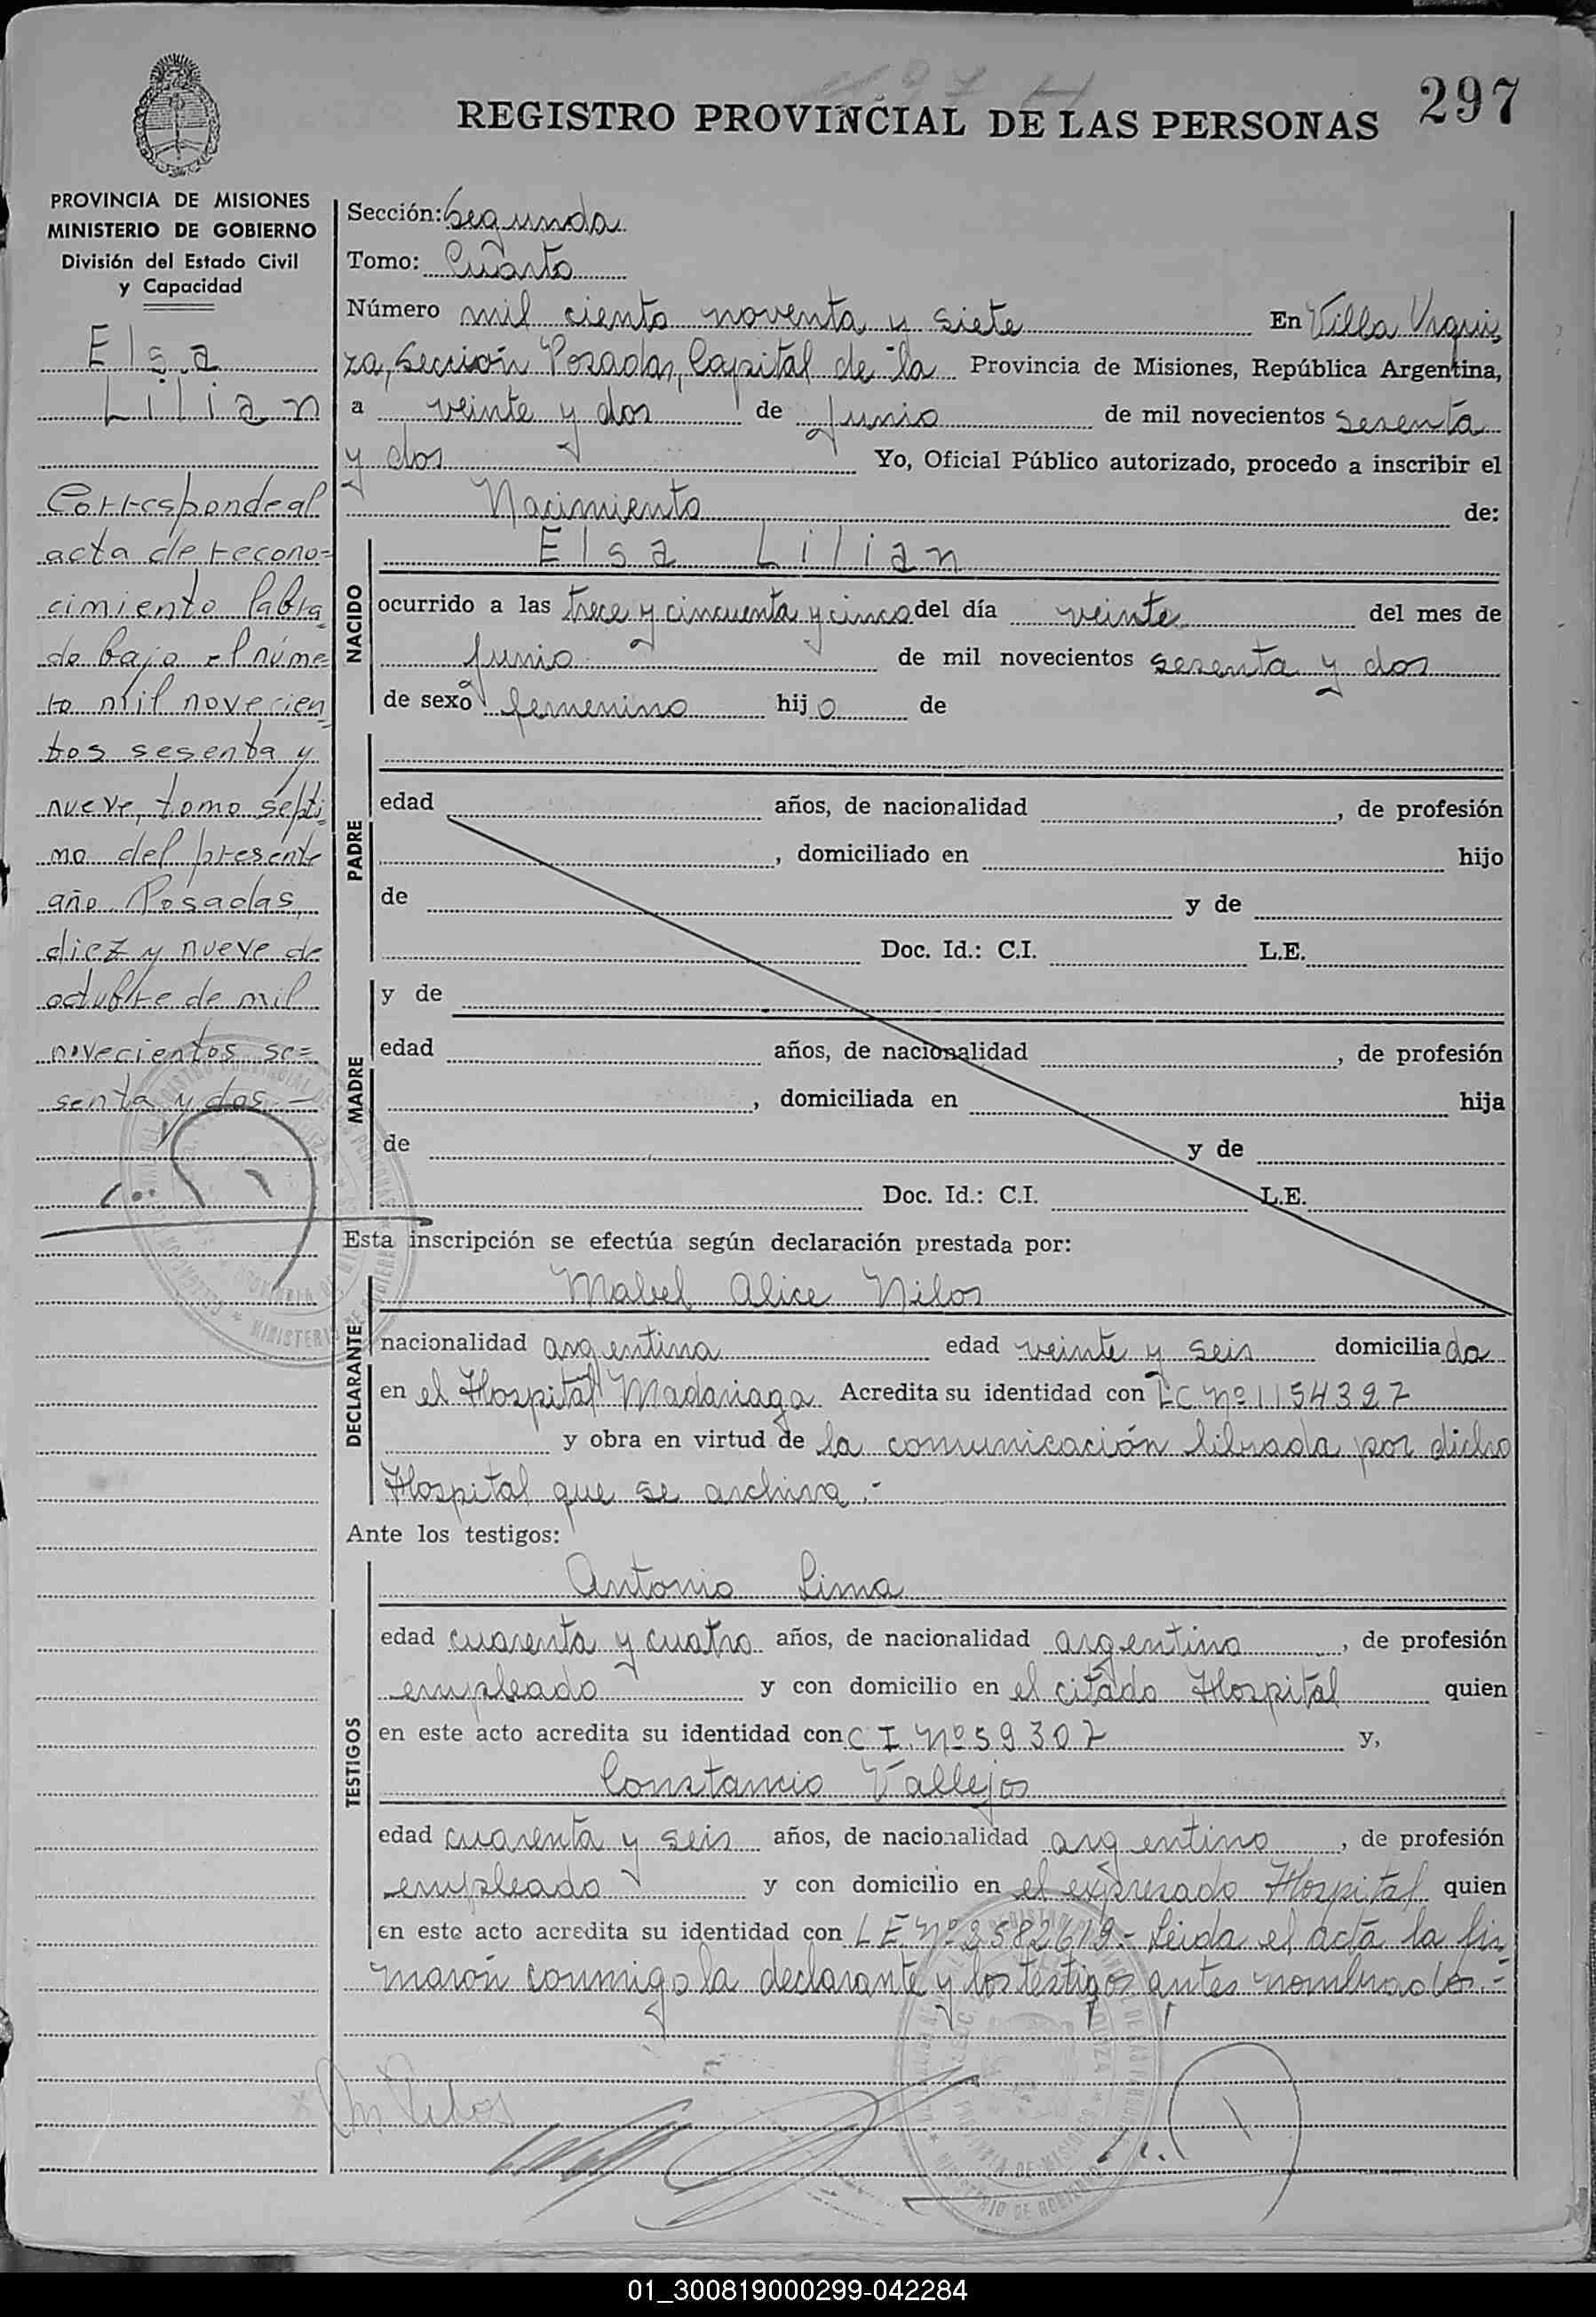 297
REGISTRO PROVINCIAL DE LAS PERSONAS
PROVINCIA DE MISIONES
MINISTERIO DE GOBIERNO
División del Estado Civil
y Capacidad
Elsa
Lilian
Corresponde al
acta de recono=
cimiento labra
do bajo el núme=
ro mil novecien
tos sesenta y
nueve, tomo sépti
mo del presente
año. Posadas,
diez y nueve de
octubre de mil
novecientos se=
senta y dos.-
Sección: Segunda
Tomo: Cuarto
Número mil ciento noventa y siete En Villa Urqui
za, Sección Posadas, Capital de la Provincia de Misiones, República Argentina,
a veinte y dos de Junio de mil novecientos sesenta
y dos Yo, Oficial Público autorizado, procedo a inscribir el
Nacimiento de:
NACIDO
Elsa Lilian
ocurrido a las trece y cincuenta y cinco del día veinte del mes de
Junio de mil novecientos sesenta y dos
de sexo femenino hijo de
PADRE
edad años, de nacionalidad , de profesión
, domiciliado en hijo
de y de
Doc. Id.: C.I. L.E.
MADRE
y de
edad años, de nacionalidad , de profesión
, domiciliada en hija
de y de
Doc. Id.: C.I. L.E.
Esta inscripción se efectúa según declaración prestada por:
DECLARANTE
Mabel Alice Nilos
nacionalidad argentina edad veinte y seis domiciliada
en el Hospital Madariaga Acredita su identidad con LC. Nº 1154397
y obra en virtud de la comunicación librada por dicho
Hospital que se archiva.-
Ante los testigos:
TESTIGOS
Antonio Lima
edad cuarenta y cuatro años, de nacionalidad argentino, de profesión
empleado y con domicilio en el citado Hospital quien
en este acto acredita su identidad con C I. Nº 59307 y,
Constancio Vallejos
edad cuarenta y seis años, de nacionalidad argentino, de profesión
empleado y con domicilio en el expresado Hospital quien
en este acto acredita su identidad con LE. Nº 3582619.- Leida el acta la fir
maron conmigo la declarante y los testigos antes nombrados.-
01_300819000299-042284